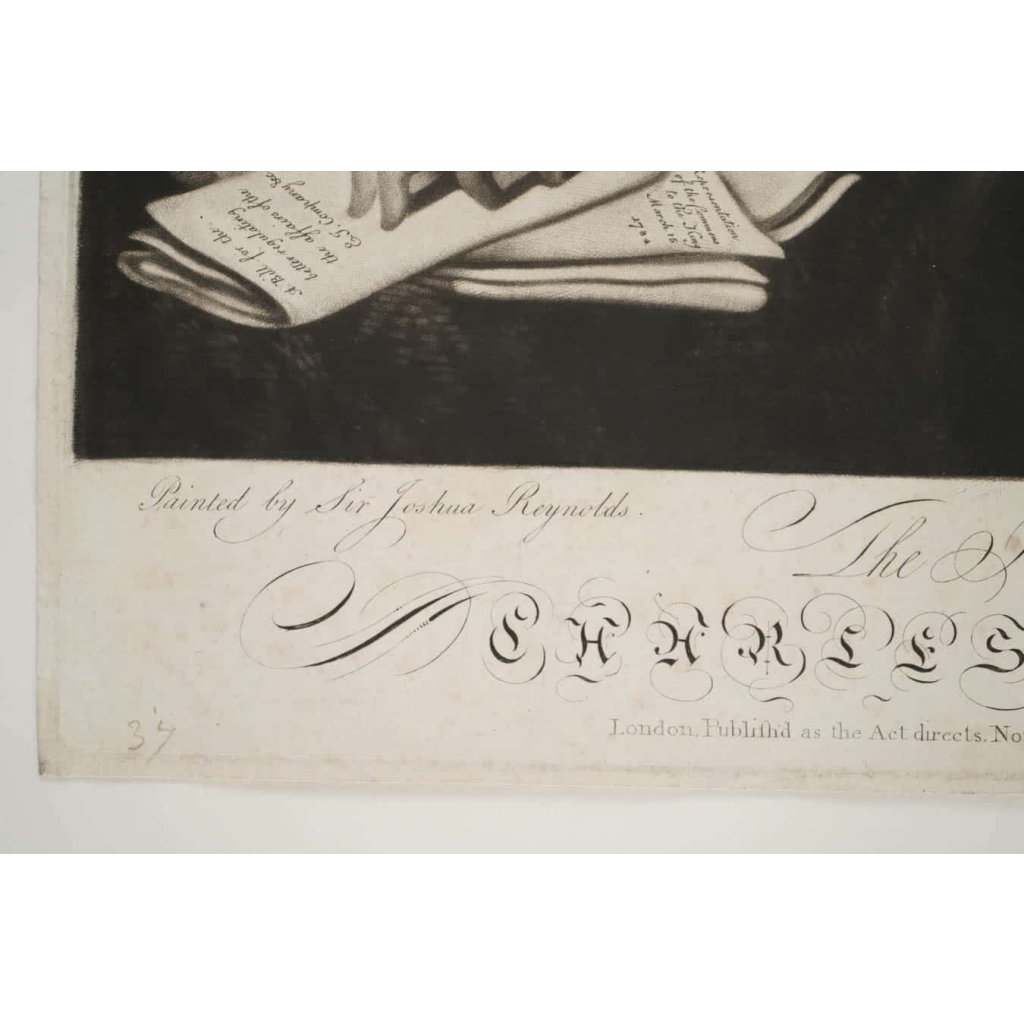 A Bill for the
better regulating
the affairs of the
E.I Company &c
Representation
of the Commons
to the King
March 15
1784
Painted by Sir Joshua Reynolds.
The
CHARLES
London, Publiſh'd as the Act directs. No
37